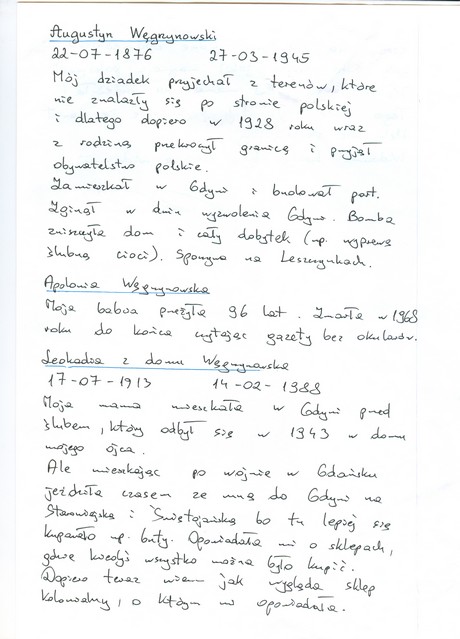 Augustyn Węgrzynowski
22-07-1876 27-03-1945
Mój dziadek przyjechał z terenów, które
nie znalazły się po stronie polskiej
i dlatego dopiero w 1928 roku wraz
z rodziną przekroczył granicę i przyjął
obywatelstwo polskie.
Zamieszkał w Gdyni i budował port.
Zginął w dniu wyzwolenia Gdyni. Bomba
zniszczyła dom i cały dobytek (np. wyprawę
ślubną cioci). Spoczywa na Leszczynkach.
Apolonia Węgrzynowska
Moja babcia przeżyła 96 lat. Zmarła w 1968
roku do końca czytając gazety bez okularów.
Leokadia z domu Węgrzynowska
17-07-1913 14-02-1988
Moja mama mieszkała w Gdyni przed
ślubem, który odbył się w 1943 w domu
mojego ojca.
Ale mieszkając po wojnie w Gdańsku
jeździła czasem ze mną do Gdyni na
Starowiejską i Świętojańską bo tu lepiej się
kupowało np. buty. Opowiadała mi o sklepach,
gdzie kiedyś wszystko można było kupić.
Dopiero teraz wiem jak wygląda sklep
kolonialny, o którym mi opowiadała.